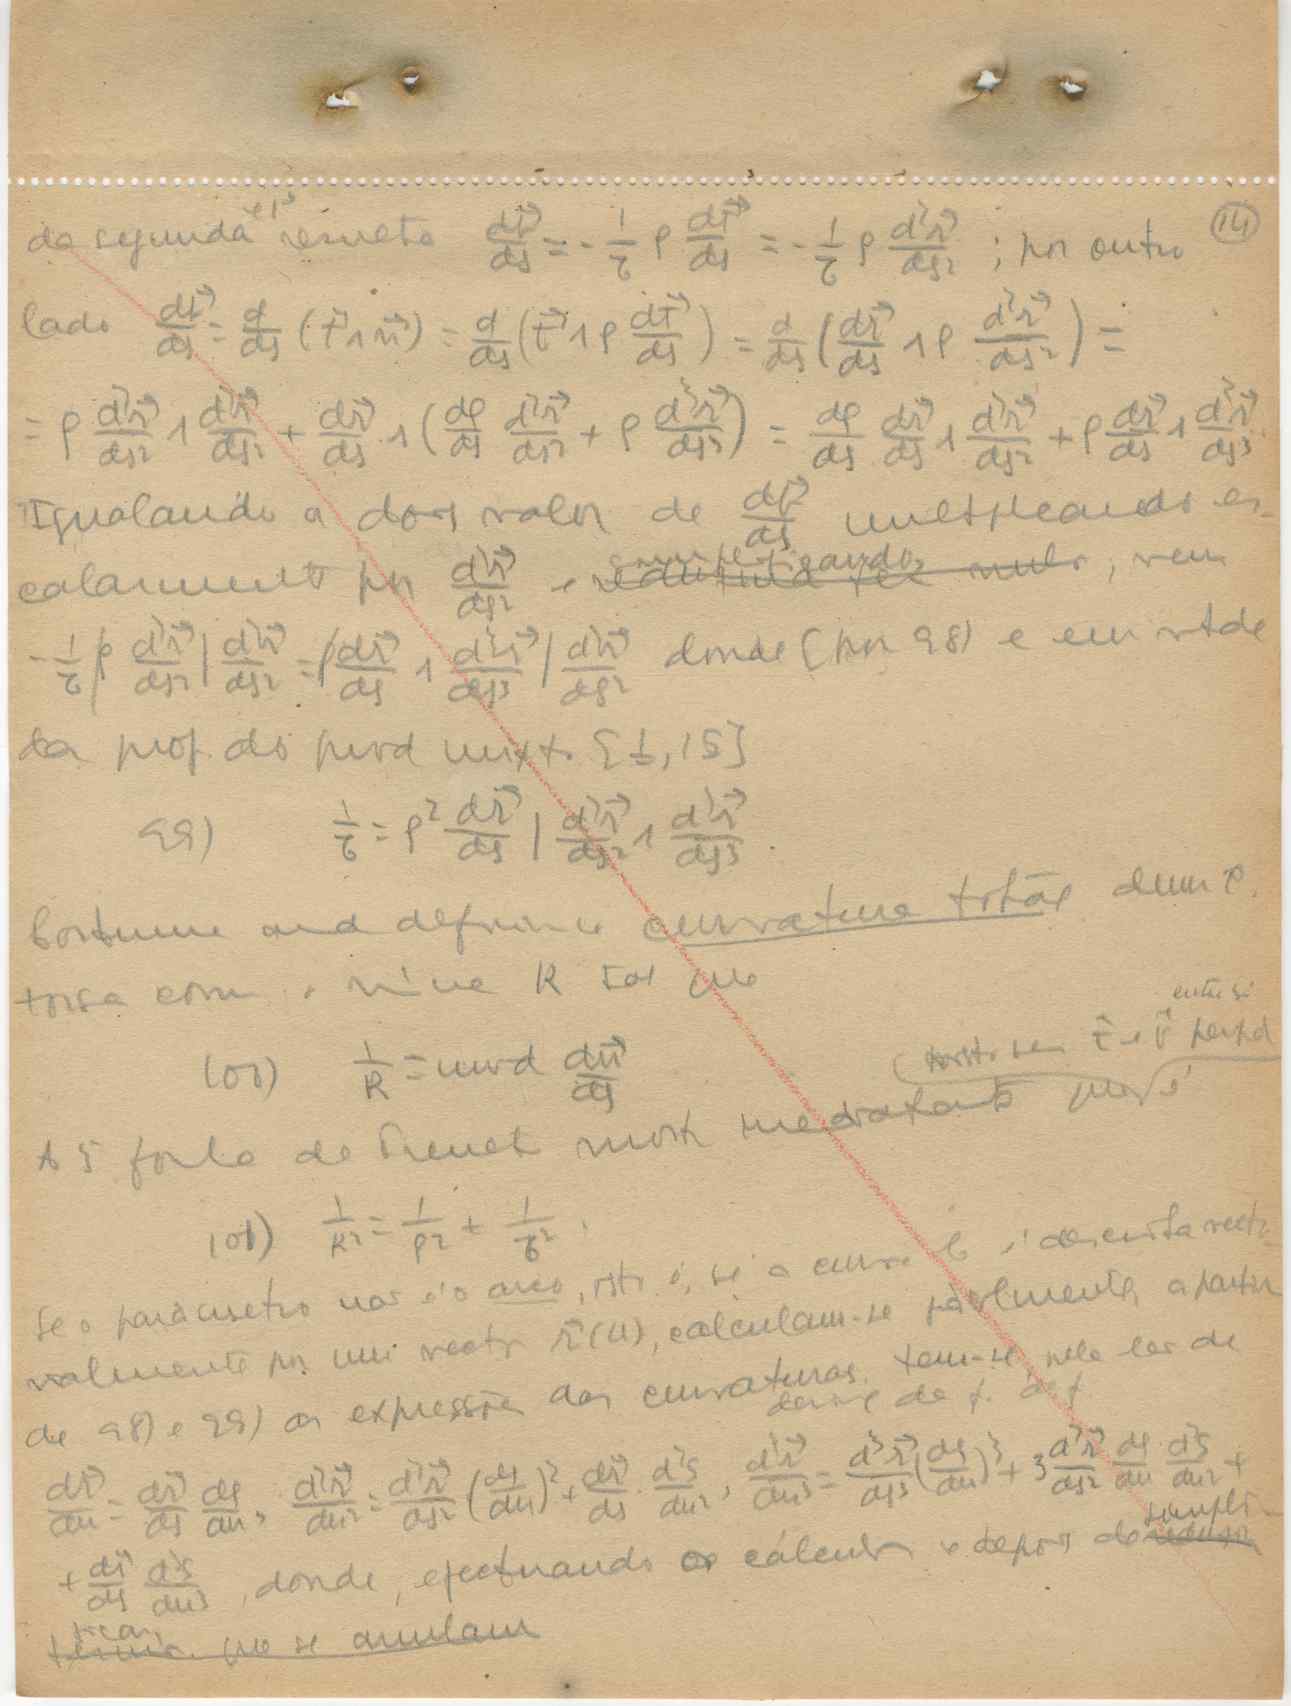 (14)
da segunda resulta db⃗/ds = -1/τ ρ dt⃗/ds = -1/τ ρ d²r⃗/ds² ; por outro
lado db⃗/ds = d/ds (t⃗ ∧ n⃗) = d/ds (t⃗ ∧ ρ dt⃗/ds) = d/ds (dr⃗/ds ∧ ρ d²r⃗/ds²) =
= ρ d²r⃗/ds² ∧ d²r⃗/ds² + dr⃗/ds ∧ (dρ/ds d²r⃗/ds² + ρ d³r⃗/ds³) = dρ/ds dr⃗/ds ∧ d²r⃗/ds² + ρ dr⃗/ds ∧ d³r⃗/ds³.
Igualando os dois valor de db⃗/ds multiplicando es-
calarmente por d²r⃗/ds² e simplificando, vem
-1/τ ρ d²r⃗/ds² | d²r⃗/ds² = ρ dr⃗/ds ∧ d³r⃗/ds³ | d²r⃗/ds² donde (por 98) e em virtde
da prop. do prod mixto [1,15]
99) 1/τ = ρ² dr⃗/ds | d²r⃗/ds² ∧ d³r⃗/ds³.
Costuma definir-se curvatura total duma c.
torsa como o R tal que
100) 1/R = mod dn⃗/ds
entre si
(visto serem t⃗ e b⃗ perpend
As fórmulas de Frenet mostram imediatamente que é
101) 1/R² = 1/ρ² + 1/τ².
Se o parâmetro não é o arco, isto é, se a curva C é descrita vecto-
rialmente por um vector r⃗(u), calculam-se facilmente, a partir
de 98) e 99) as expressões das curvaturas. tem-se, pela lei de
deriv. de f. de f.
dr⃗/du = dr⃗/ds ds/du, d²r⃗/du² = d²r⃗/ds² (ds/du)² + dr⃗/ds d²s/du², d³r⃗/du³ = d³r⃗/ds³ (ds/du)³ + 3 d²r⃗/ds² ds/du d²s/du² +
simpli-
+ dr⃗/ds d³s/du³, donde, efectuando os cálculos e depois de
ficar,
termos que se anulam